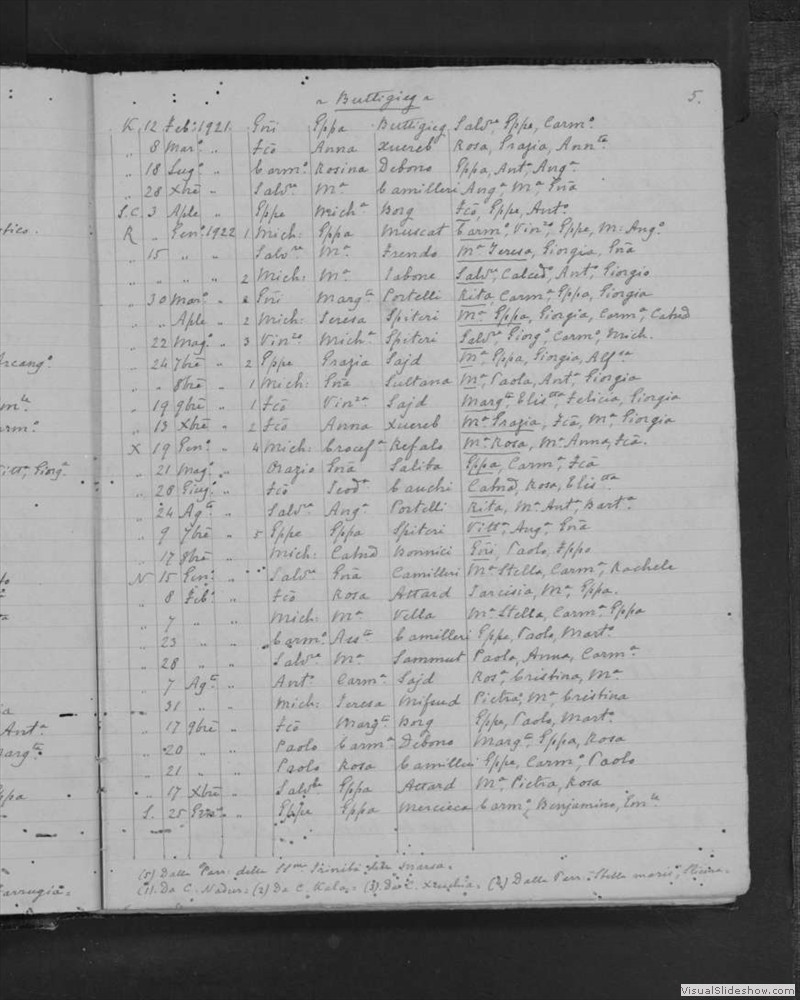 tico.
Arcang.o
Vitt.a, Giorg.a
Ant.a
Marg.ta
arrugia.
~ Buttigieg ~ 5.
K 12 Feb: 1921 Gñi Eppa Buttigieg Salv.re, Eppe, Carm.o
„ 8 Mar.o „ Fcō Anna Xuereb Rosa, Grazia, Ann.ta
„ 18 Lug.o „ Carm.o Rosina Debono Eppa, Ant.a, Ang.a
„ 28 Xbre „ Salv.re M.a Camilleri Ang.a, M.a, Gña
S.C 3 Aple „ Eppe Mich.a Borg Fcō, Eppe, Ant.o
R „ Gen.o 1922 1 Mich: Eppa Muscat Carm.o, Vin.zo, Eppe, M: Ang.o
„ 15 „ „ Salv.re M.a Frendo M.a Teresa, Giorgia, Gña
„ „ „ „ 2 Mich: M.a Tabone Salv.re, Calced.o, Ant.o, Giorgio
„ 30 Mar.o „ 2 Gñi Marg.ta Portelli Rita, Carm.a, Eppa, Giorgia
„ „ Aple „ 2 Mich: Teresa Spiteri M.a Eppa, Giorgia, Carm.a, Catnd
„ 22 Mag.o „ 3 Vin.zo Mich.a Spiteri Salv.re, Giorg.o, Carm.o, Mich.
„ 24 7bre „ 2 Eppe Grazia Sajd M.a Eppa, Giorgia, Alf.sa
„ „ 8bre „ 1 Mich: Gña Sultana M.a Paola, Ant.a, Giorgia
„ 19 9bre „ 1 Fcō Vin.za Sajd Marg.ta, Elis.tta, Felicia, Giorgia
„ 13 Xbre „ 2 Fcō Anna Xuereb M.a Grazia, Fcā, M.a, Giorgia
X 19 Gen.o „ 4 Mich: Crocef.a Refalo M.a Rosa, M.a Anna, Fcā.
„ 21 Mag.o „ Orazio Gña Saliba Eppa, Carm.a, Fcā
„ 28 Giug.o „ Fcō Teod.a Cauchi Catnd, Rosa, Elis.tta
„ 24 Ag.to „ Salv.re Ang.a Portelli Rita, M.a Ant.a, Bart.a
„ 9 7bre „ 5 Eppe Eppa Spiteri Vitt.a, Ang.a, Gña
„ 17 8bre „ Mich: Catnd Bonnici Gñi, Paolo, Eppe
N 15 Gen.o „ Salv.re Gña Camilleri M.a Stella, Carm.a, Rachele
„ 8 Feb.o „ Fcō Rosa Attard Tarcisia, M.a, Eppa.
„ 7 „ „ Mich: M.a Vella M.a Stella, Carm.a, Eppa
„ 23 „ „ Carm.o Ass.ta Camilleri Eppe, Paolo, Mart.o
„ 28 „ „ Salv.re M.a Sammut Paola, Anna, Carm.a
„ 7 Ag.to „ Ant.o Carm.a Sajd Ros.a, Cristina, M.a
„ 31 „ „ Mich: Teresa Mifsud Pietra, M.a, Cristina
„ 17 9bre „ Fcō Marg.ta Borg Eppe, Paolo, Mart.o
„ 20 „ „ Paolo Carm.a Debono Marg.ta, Eppa, Rosa
„ 21 „ „ Paolo Rosa Camilleri Eppe, Carm.o, Paolo
„ 17 Xbre „ Salv.re Eppa Attard M.a, Pietra, Rosa
S. 25 Gen.o „ Eppe Eppa Mercieca Carm.o, Benjamino, Em.le
(5) Dalla Parr. della SS.ma Trinità Marsa.
(1). Da C. Nadur. (2) Da C. Kala. (3) Da C. Xeuchia. (4) Dalla Parr. Stella maris, Sliema.
VisualSlideshow.com